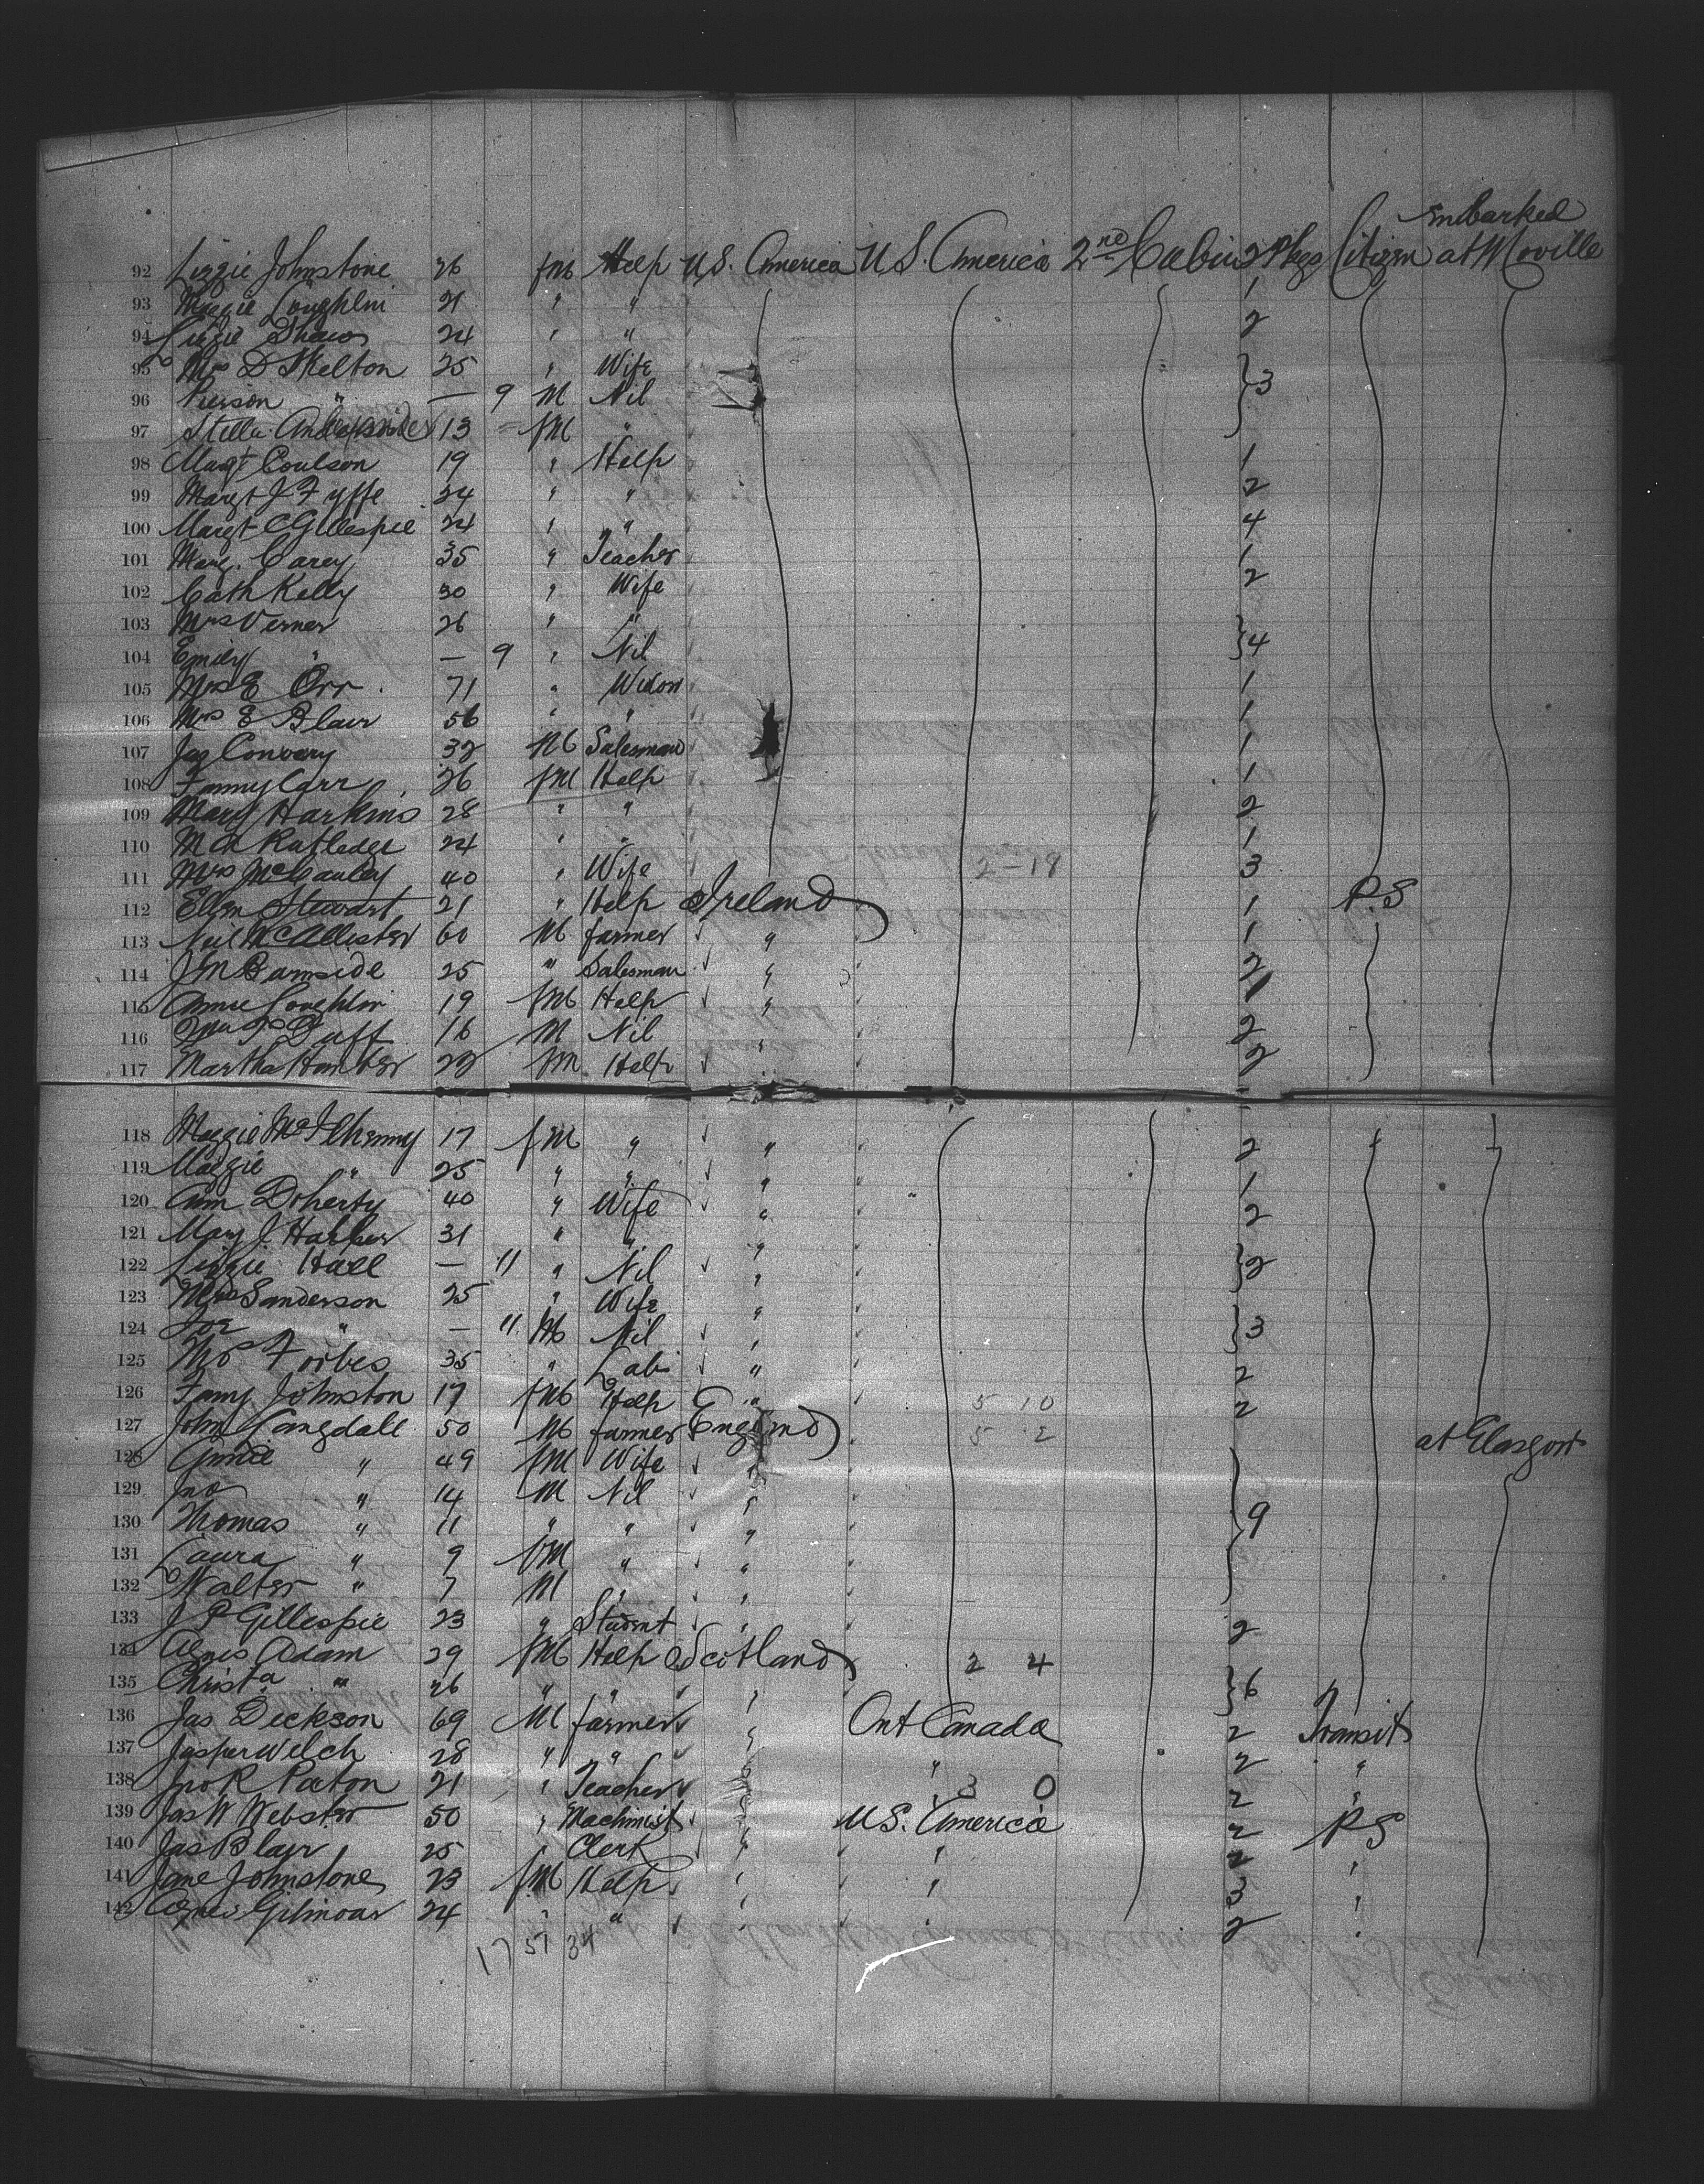 Embarked
92 Lizzie Johnstone 26 fM Help U.S. America U.S. America 2nd Cabin 2 Pkgs Citizen at Moville
93 Maggie Loughlin 21 " " 1
94 Lizzie Shaw 24 " " 2
95 Mrs D Skelton 25 " Wife
96 Pierson " — 9 M Nil } 3
97 Stella 13 = fM "
98 Magt Coulson 19 " Help 1
99 Margt J Fyffe 24 " " 2
100 Margt C Gillespie 24 " " 4
101 Marg. Carey 35 " Teacher 1
102 Cath Kelly 30 " Wife 2
103 Mrs Verner 26 " "
104 Emily " — 9 " Nil } 4
105 Mrs E Orr. 71 " Widow 1
106 Mrs E Blair 56 " " 1
107 Jas Convery 32 M Salesman 1
108 Fanny Carr 26 fM Help 1
109 Mary Harkins 28 " " 2
110 M A Rutledge 24 " " 1
111 Mrs McCauley 40 " Wife 2-19 3
112 Ellen Stewart 21 " Help Ireland 1 P.S
113 Neil McAllister 60 M farmer " 1
114 Jn Burnside 25 " Salesman " 2
115 Annie Loughlin 19 fM Help " 1
116 Duff 16 M Nil " 2
117 Martha Hunter 22 fM Help " 2
118 Maggie McIlhenny 17 fM " " 2
119 Maggie " 25 " " " 1
120 Ann Doherty 40 " Wife " 2
121 Mary J 31 " " "
122 Lizzie Hall — 11 " Nil " } 2
123 Mrs Sanderson 25 " Wife "
124 Joe " — 11 M Nil " } 3
125 Thos Forbes 35 " Lab " 2
126 Fanny Johnston 17 fM Help " 5 10 2
127 John Langdale 50 M farmer England 5 2 at Glasgow
128 Annie " 49 fM Wife "
129 Jno " 14 M Nil "
130 Thomas " 11 " " " } 9
131 Laura " 9 fM " "
132 Walter " 7 M " "
133 J P Gillespie 23 " Student " 2
134 Agnes Adam 29 fM Help Scotland 2 4
135 Christa " 26 " " " } 6
136 Jas Dickson 69 M farmer " Ont Canada 2 Transit
137 Jasper Welch 28 " " " " 2 "
138 Jno R Paton 21 " Teacher " 3 0 2 "
139 Jas W Webster 50 " Machinist " U.S. America 2 P.S
140 Jas Blair 25 " Clerk " " 2 "
141 Jane Johnstone 23 fM Help " " 3 "
142 Agnes Gilmour 24 " " " " 2 "
17 51 34